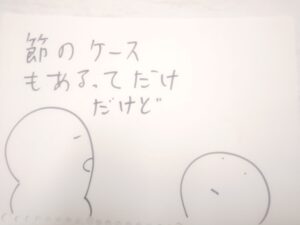 節のケース
もあるってだけ
だけど